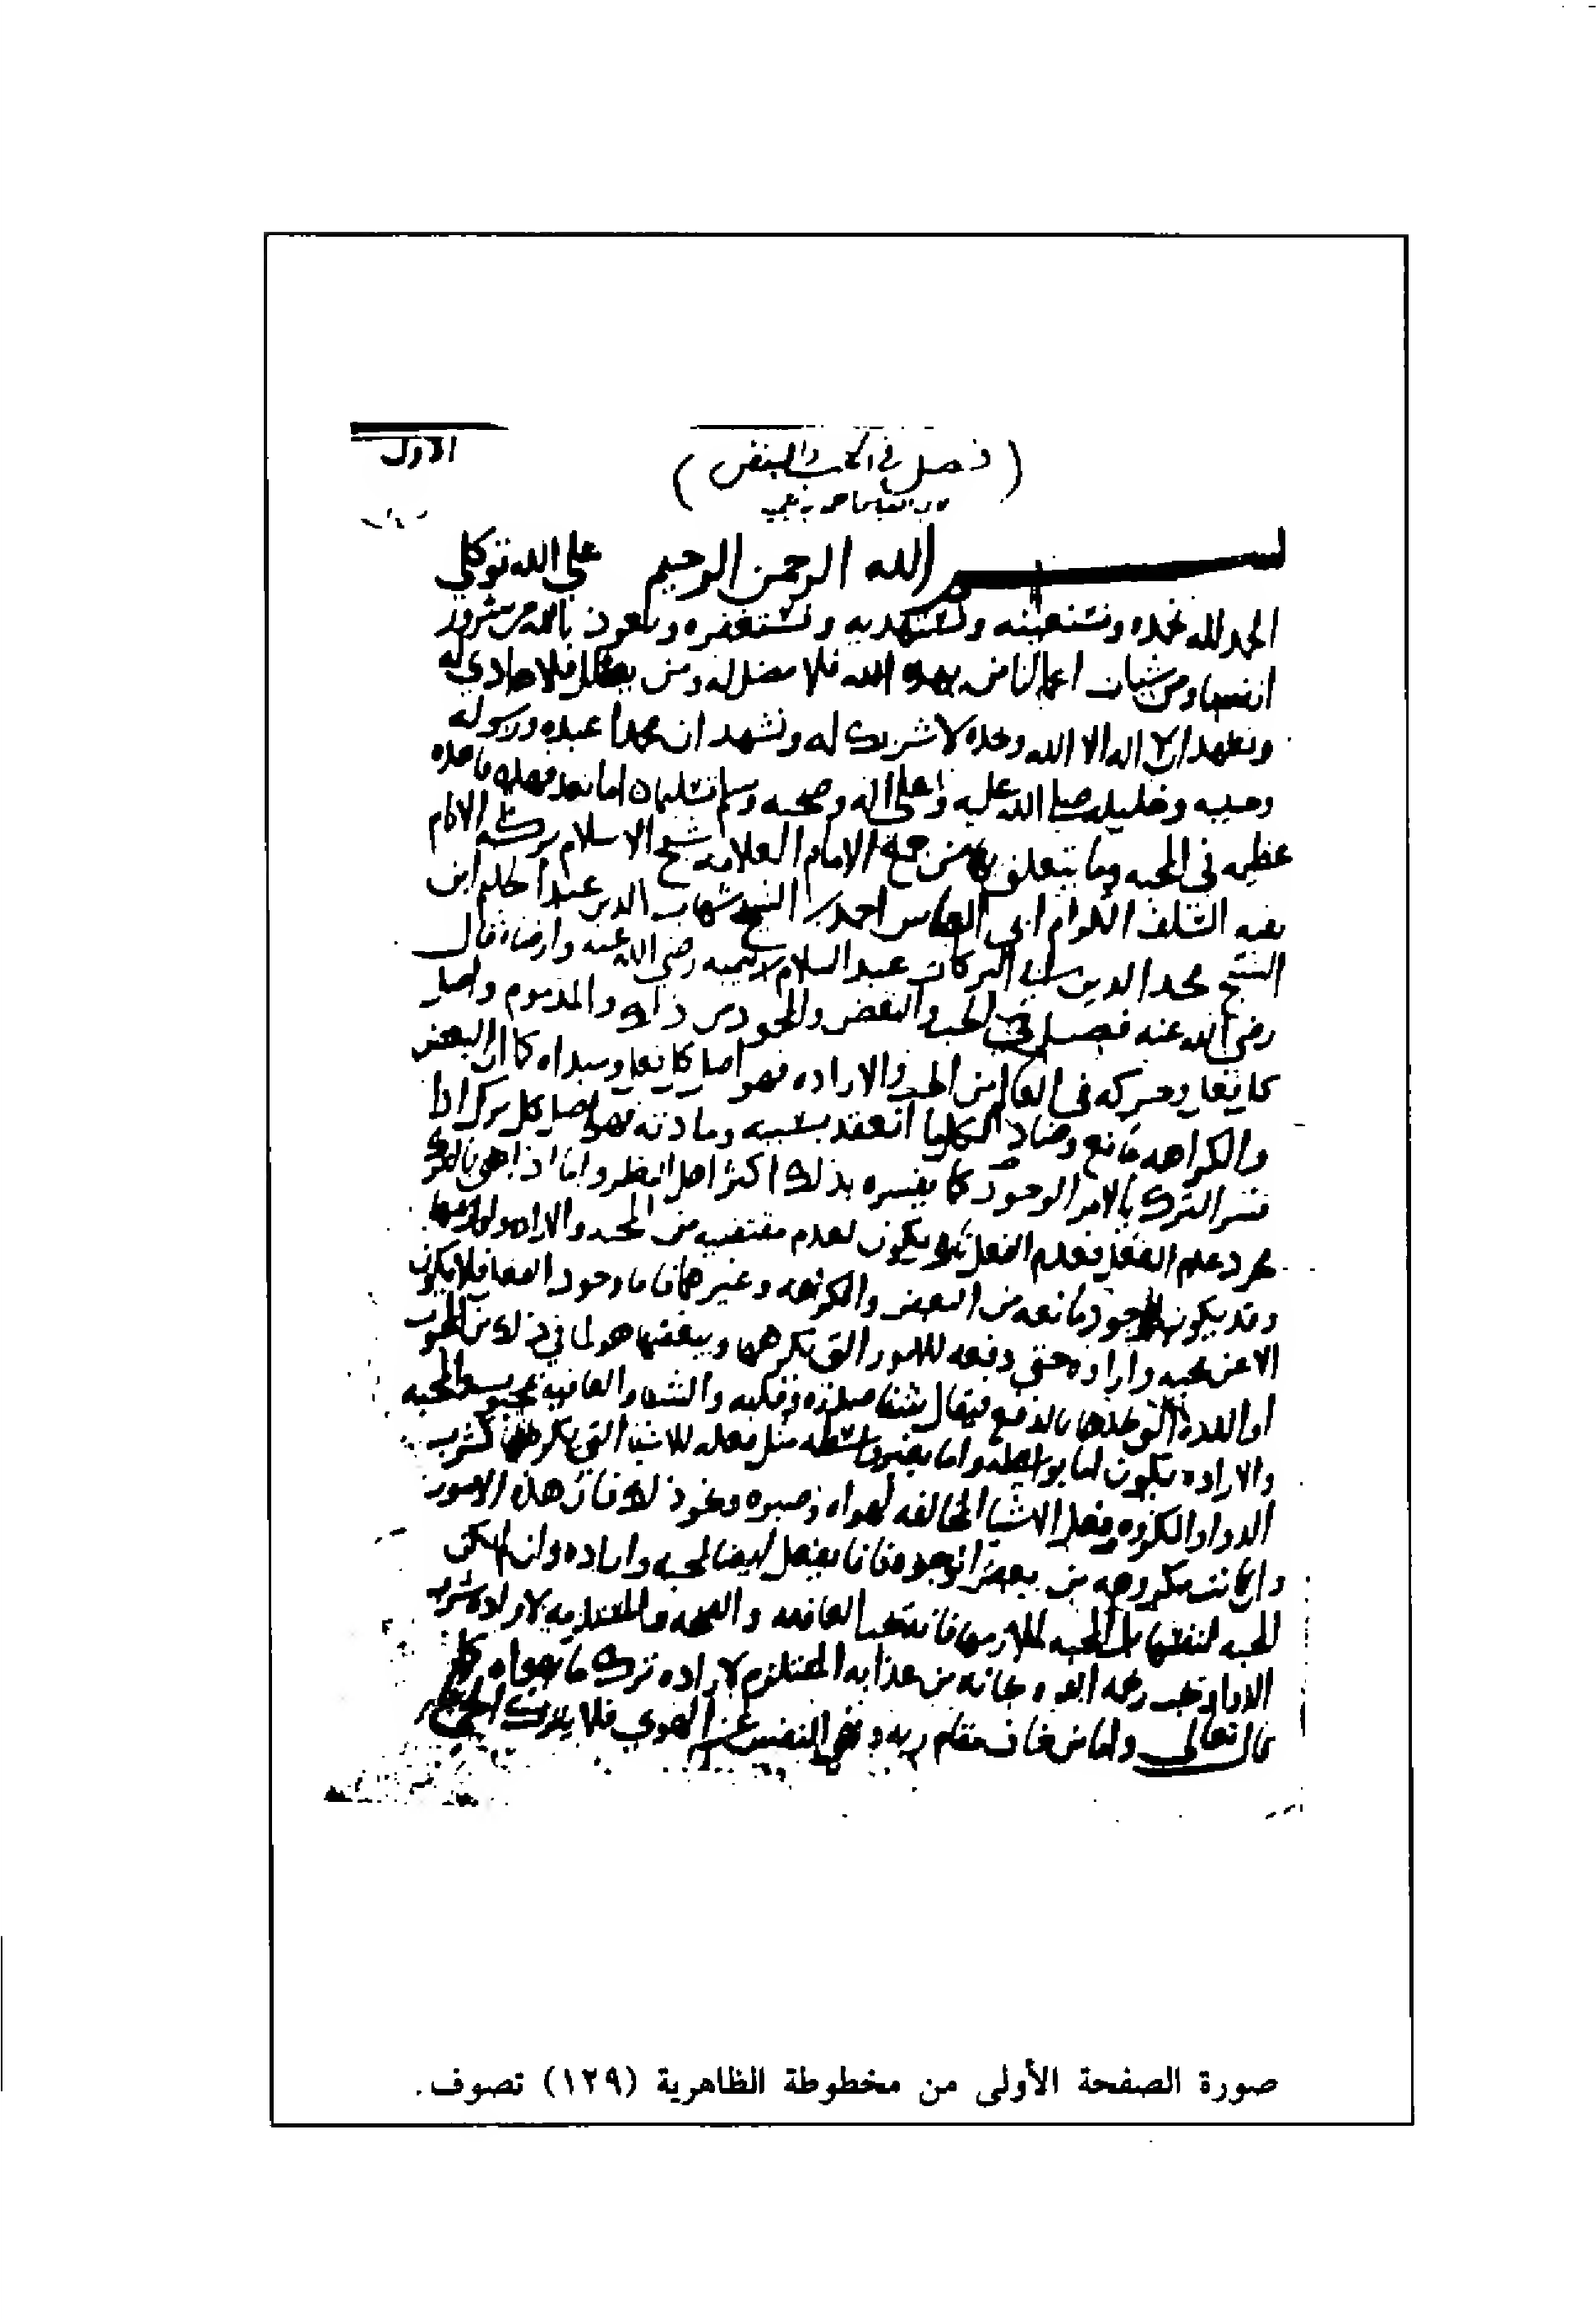 الاول
( فصل في الحب والبغض )
بسم الله الرحمن الرحيم على الله توكلي
الحمد لله نحمده ونستعينه ونستهديه ونستغفره ونعوذ بالله من شرور
انفسنا ومن سيات اعمالنا من يهده الله فلا مضل له ومن يضلل فلا هادي له
ونشهد ان لا اله الا الله وحده لا شريك له ونشهد ان محمدا عبده ورسوله
وحبيبه وخليله صلى الله عليه وعلى اله وصحبه وسلم تسليما اما بعد فهذه قاعده
عظيمه في المحبه وما يتعلق بها من جمع الامام العلامه شيخ الاسلام بركة الانام
بقيه السلف الكرام ابي العباس احمد بن الشيخ شهاب الدين عبد الحليم ابن
الشيخ مجد الدين ابي البركات عبد السلام بن تيميه رضي الله عنه وارضاه قال
رضي الله عنه فصل في الحب والبغض والمحمود من ذلك والمذموم واصل
كل فعل وحركه في العالم من الحب والاراده فهو اصل كل فعل ومبداه كما ان البغض
والكراهه مانع وصاد لكل ما انعقد بسببه ومادته فهو اصل كل ترك اذا
فسر الترك بالامر الوجودي كما يفسره بذلك اكثر اهل النظر واما اذا عني بالترك
مجرد عدم الفعل فعدم الفعل تارة يكون لعدم مقتضيه من المحبه والاراده ولوازمهما
وقد يكون لوجود مانعه من البغض والكراهه وغيرهما فاما وجود الفعل فلا يكون
الا عن محبه وارادة حتى دفعه للامور التي يكرهها ويبغضها هو لما في ذلك من المحبوب
او اللذة التي يجدها بالدفع فيقال شفا صدره وقلبه والشفا والعافيه محبوب والمحبه
والاراده تكون اما بواسطه واما بغير واسطه مثل فعله للاشيا التي يكرهها كشرب
الدوا المكروه وفعل الاشيا المخالفه لهواه وصبره ونحو ذلك فان هذه الامور
وان كانت مكروهه من بعض الوجوه فانما يفعل ايضا لمحبه واراده وان لم تكن
المحبه لنفسها بل المحبه لملازمها فانه يحب العافيه والصحه المستلزمه لاراده شرب
الدوا ويحب رحمه الله ونجاته من عذابه المستلزم لاراده ترك ما يهواه كما
قال تعالى واما من خاف مقام ربه ونهى النفس عن الهوى فلا يترك الحي
صورة الصفحة الأولى من مخطوطة الظاهرية (١٢٩) تصوف.